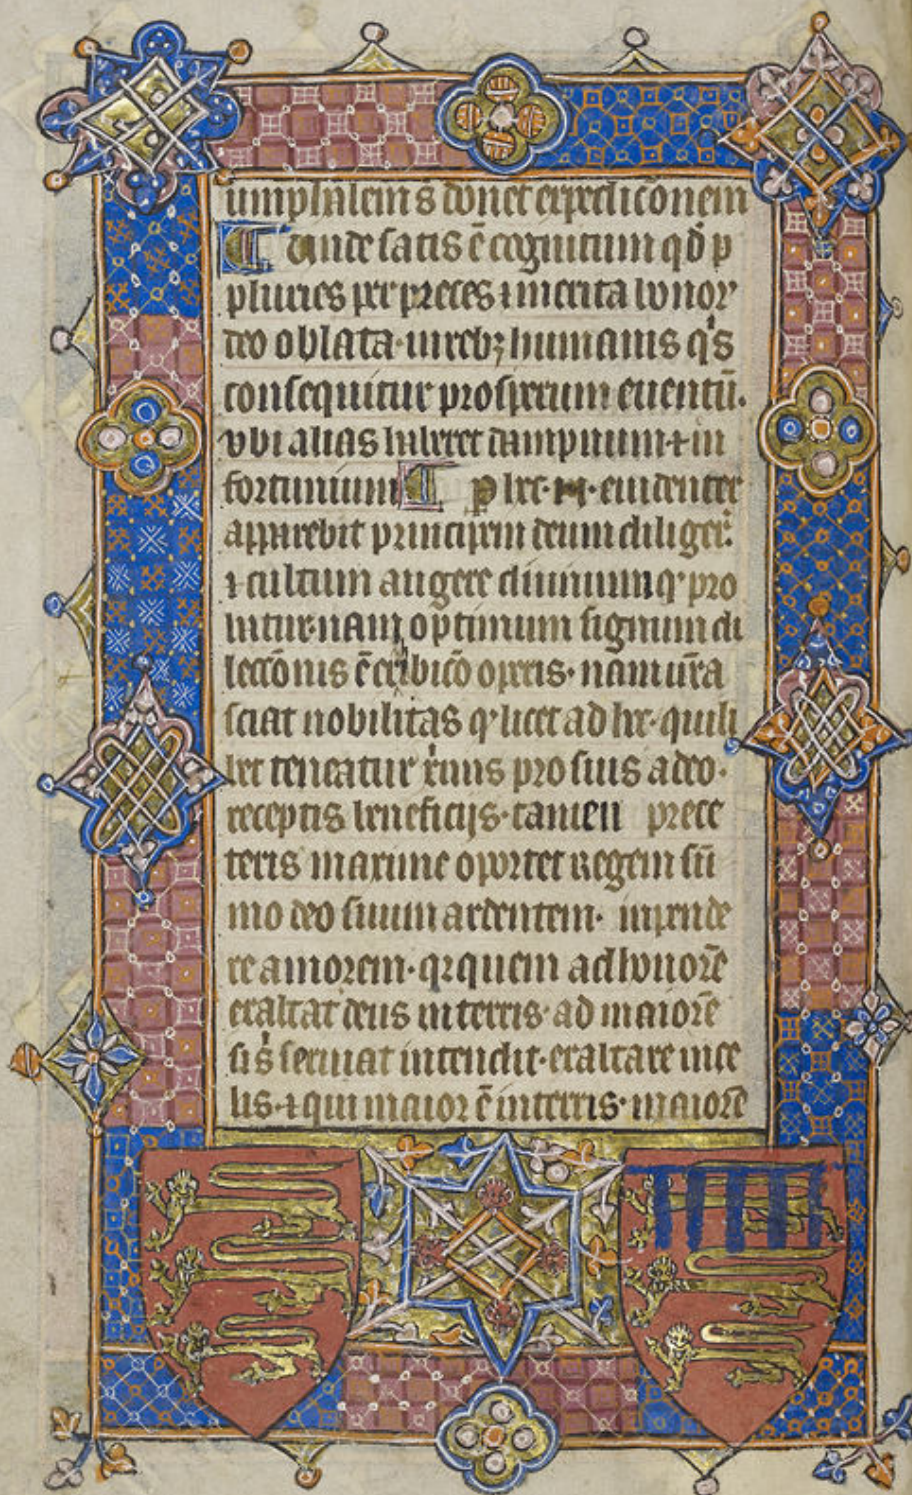 umphalem s donet expedicōnem
Unde satis ē cognitum qđ p
pluries per preces ⁊ merita bonor
deo oblata· in rebꝫ humanis qˢ
consequitur prosperum euentū·
vbi alias haberet dampnum ⁊ in
fortunium p hec· euidenter
apparebit principem deum diliger̄
⁊ cultum augere diuinum qͥ pro
bitur· nam optimum signum di
leccōnis ē exhibicō operis· nam ur̄a
sciat nobilitas qͥ licet ad hec· quili
bet teneatur pro suis a deo·
receptis beneficijs· tamen pre ce
teris maxime oportet Regem sū
mo deo suum ardentem· inpende
re amorem· qꝛ quem ad honorē
exaltat deus in terris· ad maiorē
si sͥ seruiat intendit· exaltare in ce
lis· ⁊ qui maior ē in terris· maiorē